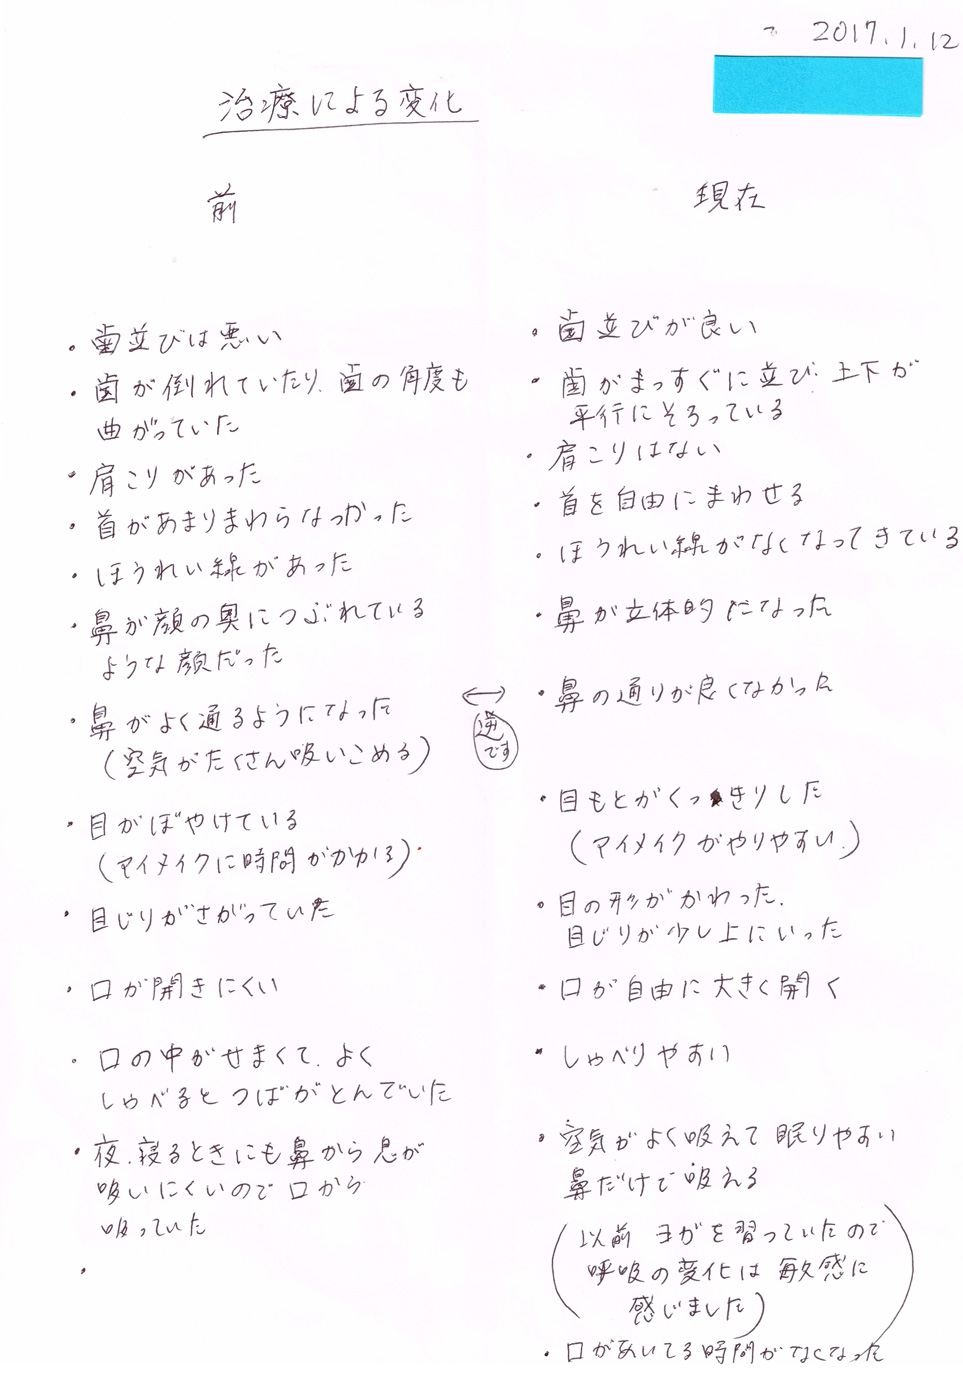 2017.1.12
治療による変化
前
現在
・歯並びは悪い
・歯が倒れていたり、歯の角度も
曲がっていた
・肩こりがあった
・首があまりまわらなかった
・ほうれい線があった
・鼻が顔の奥につぶれている
ような顔だった
・鼻がよく通るようになった
（空気がたくさん吸いこめる）
・目がぼやけている
（アイメイクに時間がかかる）
・目じりがさがっていた
・口が開きにくい
・口の中がせまくて、よく
しゃべるとつばがとんでいた
・夜、寝るときにも鼻から息が
吸いにくいので口から
吸っていた
・
↔
逆
です
・歯並びが良い
・歯がまっすぐに並び、上下が
平行にそろっている
・肩こりはない
・首を自由にまわせる
・ほうれい線がなくなってきている
・鼻が立体的になった
・鼻の通りが良くなかった
・目もとがくっきりした
（アイメイクがやりやすい。）
・目の形がかわった。
目じりが少し上にいった
・口が自由に大きく開く
・しゃべりやすい
・空気がよく吸えて眠りやすい
鼻だけで吸える
（以前ヨガを習っていたので
呼吸の変化は敏感に
感じました）
・口があいてる時間がなくなった